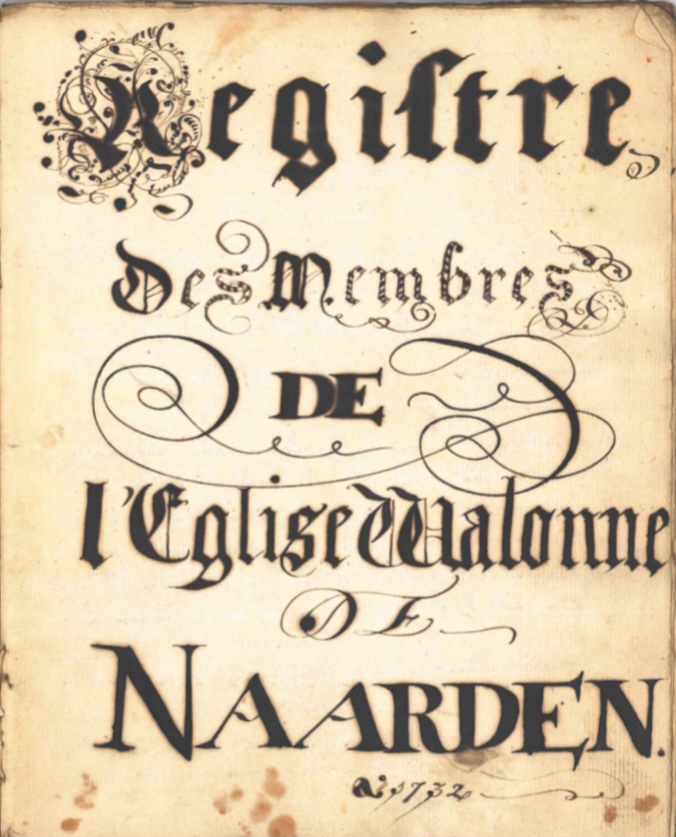 Regiſtre,
Des Membres
DE
l'Eglise Walonne
DE
NAARDEN.
Ao 1732